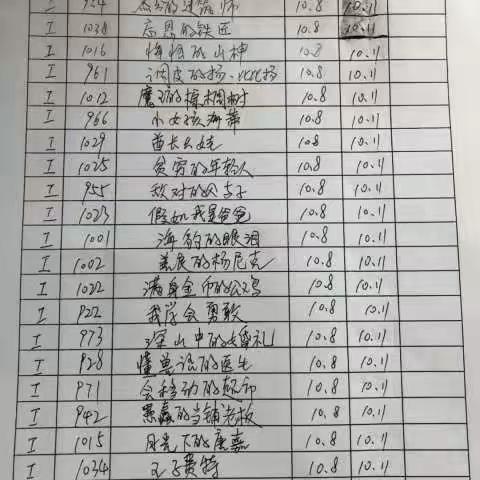 I 954 师 10.8 10.11
I 1038 忘恩的铁匠 10.8 10.11
I 1016 的山神 10.8 10.11
I 961 调皮的扬·比比扬 10.8 10.11
I 1012 魔 的棕榈树 10.8 10.11
I 966 小女孩海蒂 10.8 10.11
I 1029 酋长女婿 10.8 10.11
I 1025 贫穷的年轻人 10.8 10.11
I 955 敌对的父与子 10.8 10.11
I 1023 假如我是爸爸 10.8 10.11
I 1001 海豹的眼泪 10.8 10.11
I 1002 的杨尼克 10.8 10.11
I 1022 满身金币的公鸡 10.8 10.11
I 922 我学会勇敢 10.8 10.11
I 973 深山中的婚礼 10.8 10.11
I 928 懂兽语的医生 10.8 10.11
I 971 会移动的 10.8 10.11
I 942 的当铺老板 10.8 10.11
I 1015 月光下的 10.8 10.11
I 1034 王子费特 10.8 10.11